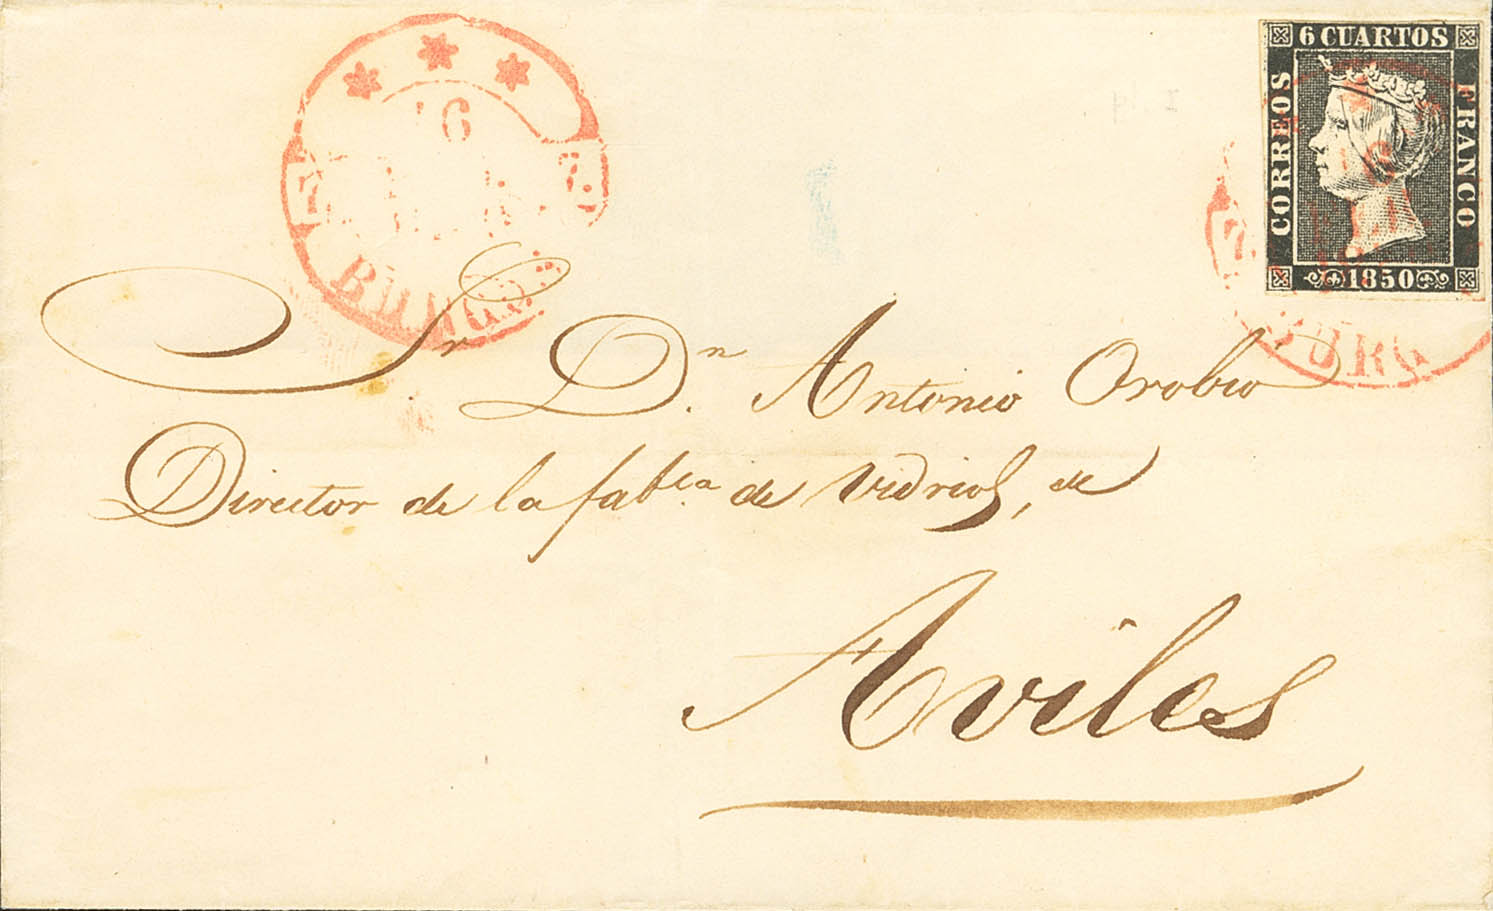 6 CUARTOS
CORREOS
FRANCO
1850
BURGO
BURG
Sr Dn. Antonio Orobio
Director de la fabca. de vidrios, de
Aviles